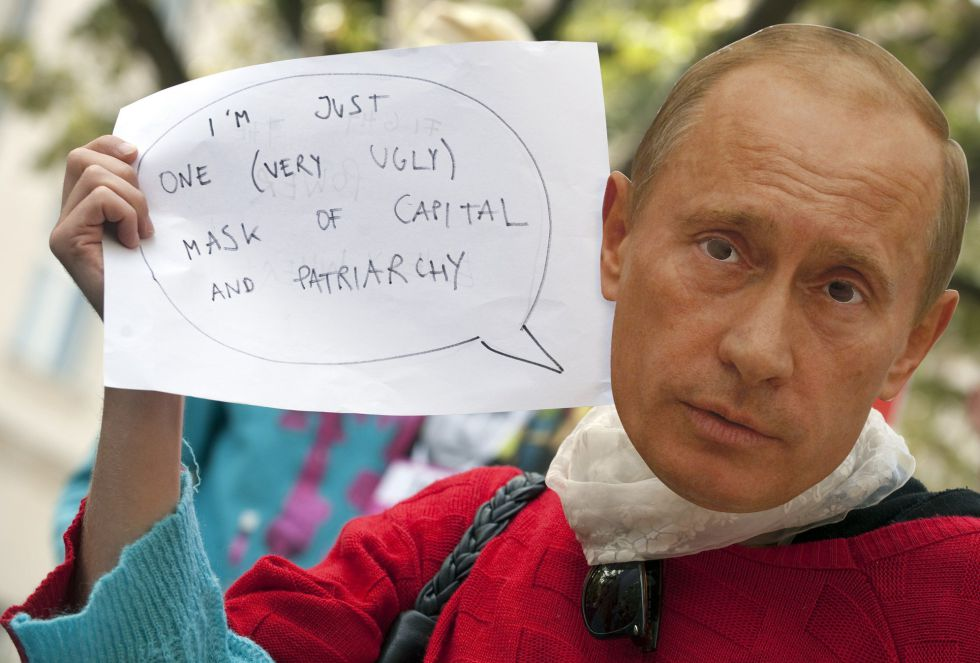 I'M JUST
ONE (VERY UGLY)
MASK OF CAPITAL
AND PATRIARCHY